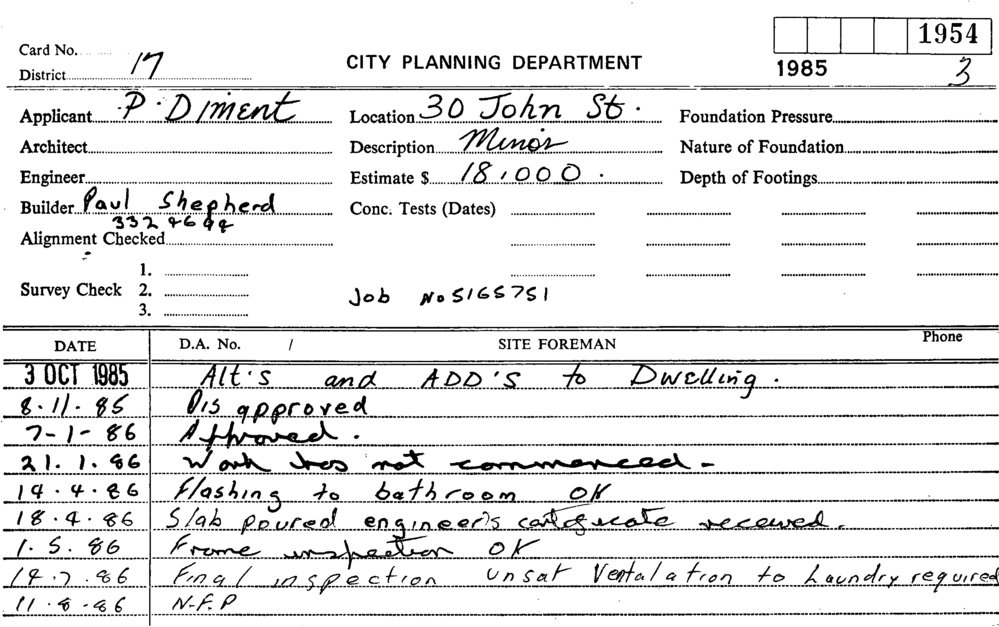 1954
Card No.
District 17
CITY PLANNING DEPARTMENT
1985
3
Applicant P. DIMENT
Location 30 John St.
Foundation Pressure
Architect
Description Minor
Nature of Foundation
Engineer
Estimate $ 18,000.
Depth of Footings
Builder Paul Shepherd
Conc. Tests (Dates)
Alignment Checked
1.
Survey Check 2.
3.
Job No 5165751
DATE
D.A. No. /
SITE FOREMAN
Phone
3 OCT 1985 Alt's and ADD'S to Dwelling.
8.11.85 Dis approved
7-1-86 Approved.
21.1.86 Work has not commenced -
14.4.86 Flashing to bathroom OK
18.4.86 Slab poured engineer's certificate received.
1.5.86 Frame inspection OK
14.7.86 Final inspection unsat Ventalation to Laundry required
11.8.86 N.F.P